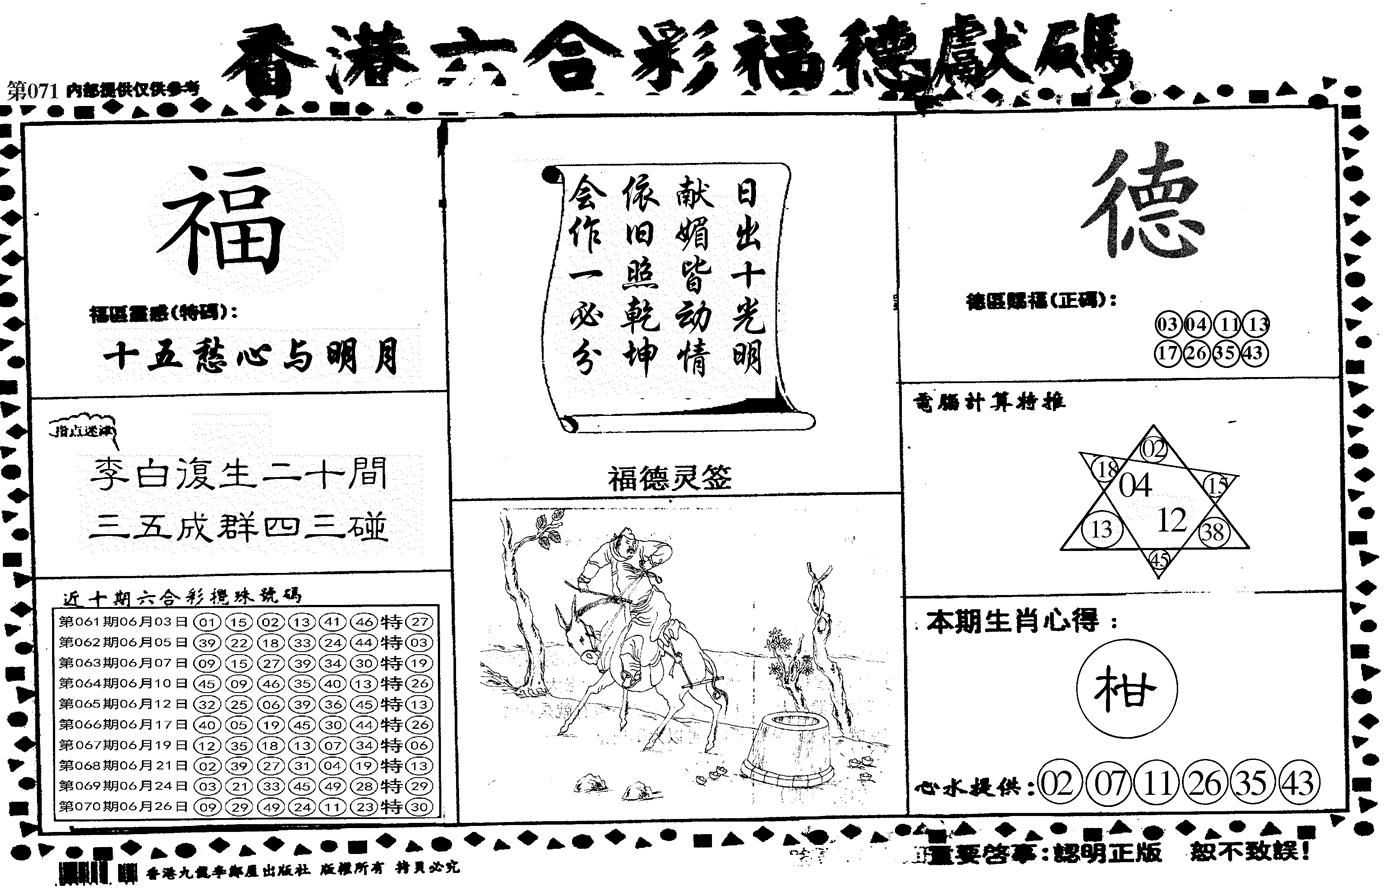 香港六合彩福德獻碼
第071 内部提供仅供参考
福
福區靈感(特碼):
十五愁心与明月
指点迷津
李白復生二十間
三五成群四三碰
近十期六合彩攪珠號碼
第061期06月03日 01 15 02 13 41 46 特 27
第062期06月05日 39 22 18 33 24 44 特 03
第063期06月07日 09 15 27 39 34 30 特 19
第064期06月10日 45 09 46 35 40 13 特 26
第065期06月12日 32 25 06 39 36 45 特 13
第066期06月17日 40 05 19 45 30 44 特 26
第067期06月19日 12 35 18 13 07 34 特 06
第068期06月21日 02 39 27 31 04 19 特 13
第069期06月24日 03 21 33 45 49 28 特 29
第070期06月26日 09 29 49 24 11 23 特 30
日出十光明
献媚皆动情
依旧照乾坤
会作一必分
福德灵签
德
德區賜福(正碼):
03 04 11 13
17 26 35 43
電腦計算特推
02
18 04 15
13 12 38
45
本期生肖心得:
柑
心水提供: 02 07 11 26 35 43
重要啓事:認明正版 恕不致誤!
香港九龍李鄭屋出版社 版權所有 拷貝必究